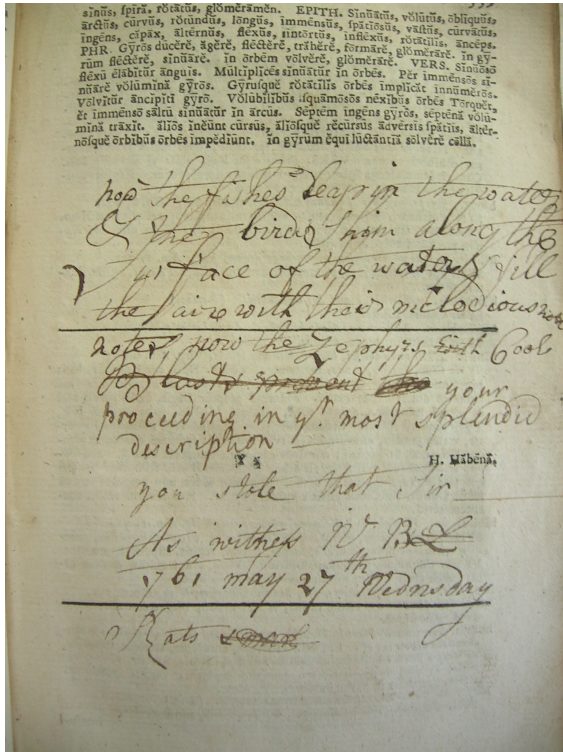 sĭnŭs, spīră, rŏtātŭs, glŏmĕrāmĕn. EPITH. Sĭnŭātŭs, vŏlūtŭs, ŏblīquŭs,
ārctŭs, cūrvŭs, rŏtūndŭs, lōngŭs, ĭmmēnsŭs, spătĭōsŭs, vāstŭs, cūrvātŭs,
īngēns, căpāx, āltērnŭs, flēxŭs, sīntōrtŭs, īnflēxŭs, rŏtātĭlĭs, ānceps.
PHR. Gȳrōs dūcĕrĕ, ăgĕrĕ, flēctĕrĕ, trăhĕrĕ, fōrmārĕ, glŏmĕrārĕ. īn gȳ-
rŭm flēctĕrĕ, sĭnŭārĕ. īn ōrbĕm vōlvĕrĕ, glŏmĕrārĕ. VERS. Sĭnŭōsō
flēxū ēlābĭtŭr ānguis. Mūltĭplĭcēs sĭnŭātŭr ĭn ōrbēs. Pĕr ĭmmēnsōs sĭ-
nŭārĕ vŏlūmĭnă gȳrōs. Gȳrūsquĕ rŏtātĭlĭs ōrbēs īmplĭcăt īnnŭmĕrōs.
Vōlvĭtŭr āncĭpĭtī gȳrō. Vŏlūbĭlĭbŭs squāmōsōs nēxĭbŭs ōrbēs Tōrquĕt,
ĕt ĭmmēnsō sāltū sĭnŭātŭr ĭn ārcŭs. Sēptĕm īngēns gȳrōs, sēptēnă vŏlū-
mĭnă trāxĭt. ălĭōs ĭnĕūnt cūrsŭs, ălĭōsquĕ rĕcūrsŭs ādvērsīs spătĭīs, āltēr-
nōsquĕ ōrbĭbŭs ōrbēs īmpĕdĭūnt. īn gȳrŭm ĕquī lūctāntĭă sōlvĕrĕ cōllă.
now the fishes leap in the water
& the birds skim along the
Surface of the water & fill
the aire with their melodious note
notes, now the Zephyrs with Cool
Blasts prevent the your
proceeding in yr. most splendid
description
H. Hăbēnă.
you stole that Sir
As witness W B L
1761 may 27th Wednsday